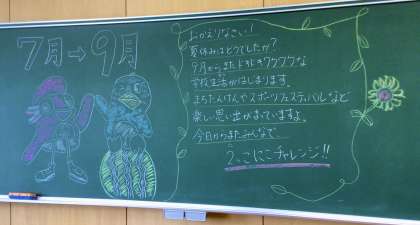 7月→9月
おかえりなさい!
夏休みはどうでしたか?
9月からまたドキドキワクワクな
学校生活がはじまります。
まちたんけんやスポーツフェスティバルなど
楽しい思い出がまっていますよ。
今日からまたみんなで
2こにこチャレンジ!!